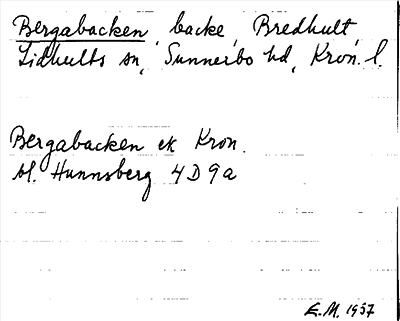 Bergabacken, backe, Bredhult,
Lidhults sn, Sunnerbo hd, Kron. l.
Bergabacken ek Kron.
bl. Hunnsberg 4D9a
E.M. 1957